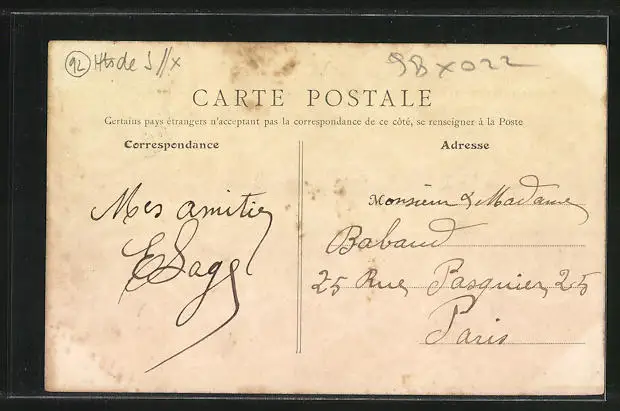 92 Hts de S // x
98 x 022
CARTE POSTALE
Certains pays étrangers n'acceptant pas la correspondance de ce côté, se renseigner à la Poste
Correspondance
Mes amitiés
Adresse
Monsieur & Madame
Babaud
25 Rue Pasquier, 25
Paris